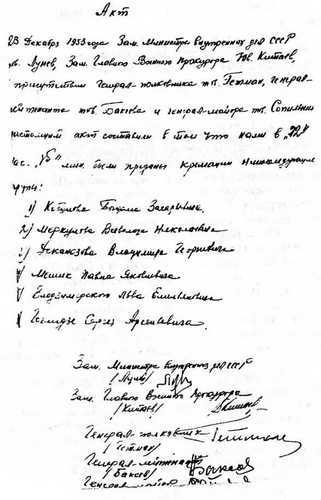 Акт
23 Декабря 1953 года Зам. Министра Внутренних дел СССР
тов. Лунев, Зам. Главного Военного Прокурора т. Китаев,
в присутствии генерал-полковника тов. Гетман, генерал-
лейтенанта тов. Бакеева и генерал-майора тов. Сопильник
настоящий акт составили в том что нами в "22"
час. 45" мин. были преданы кремации
трупы:
1) Кобулова Богдана Захарьевича
2) Меркулова Всеволода Николаевича
3) Деканозова Владимира Георгиевича
4) Мешик Павла Яковлевича
5) Влодзимирского Льва Емельяновича
6) Гоглидзе Сергея Арсентьевича.
Зам. Министра Внутренних дел СССР
(Лунев)
Зам. Главного Военного Прокурора
(Китаев)
Генерал-полковник
(Гетман)
Генерал-лейтенант
(Бакеев)
Генерал-майор